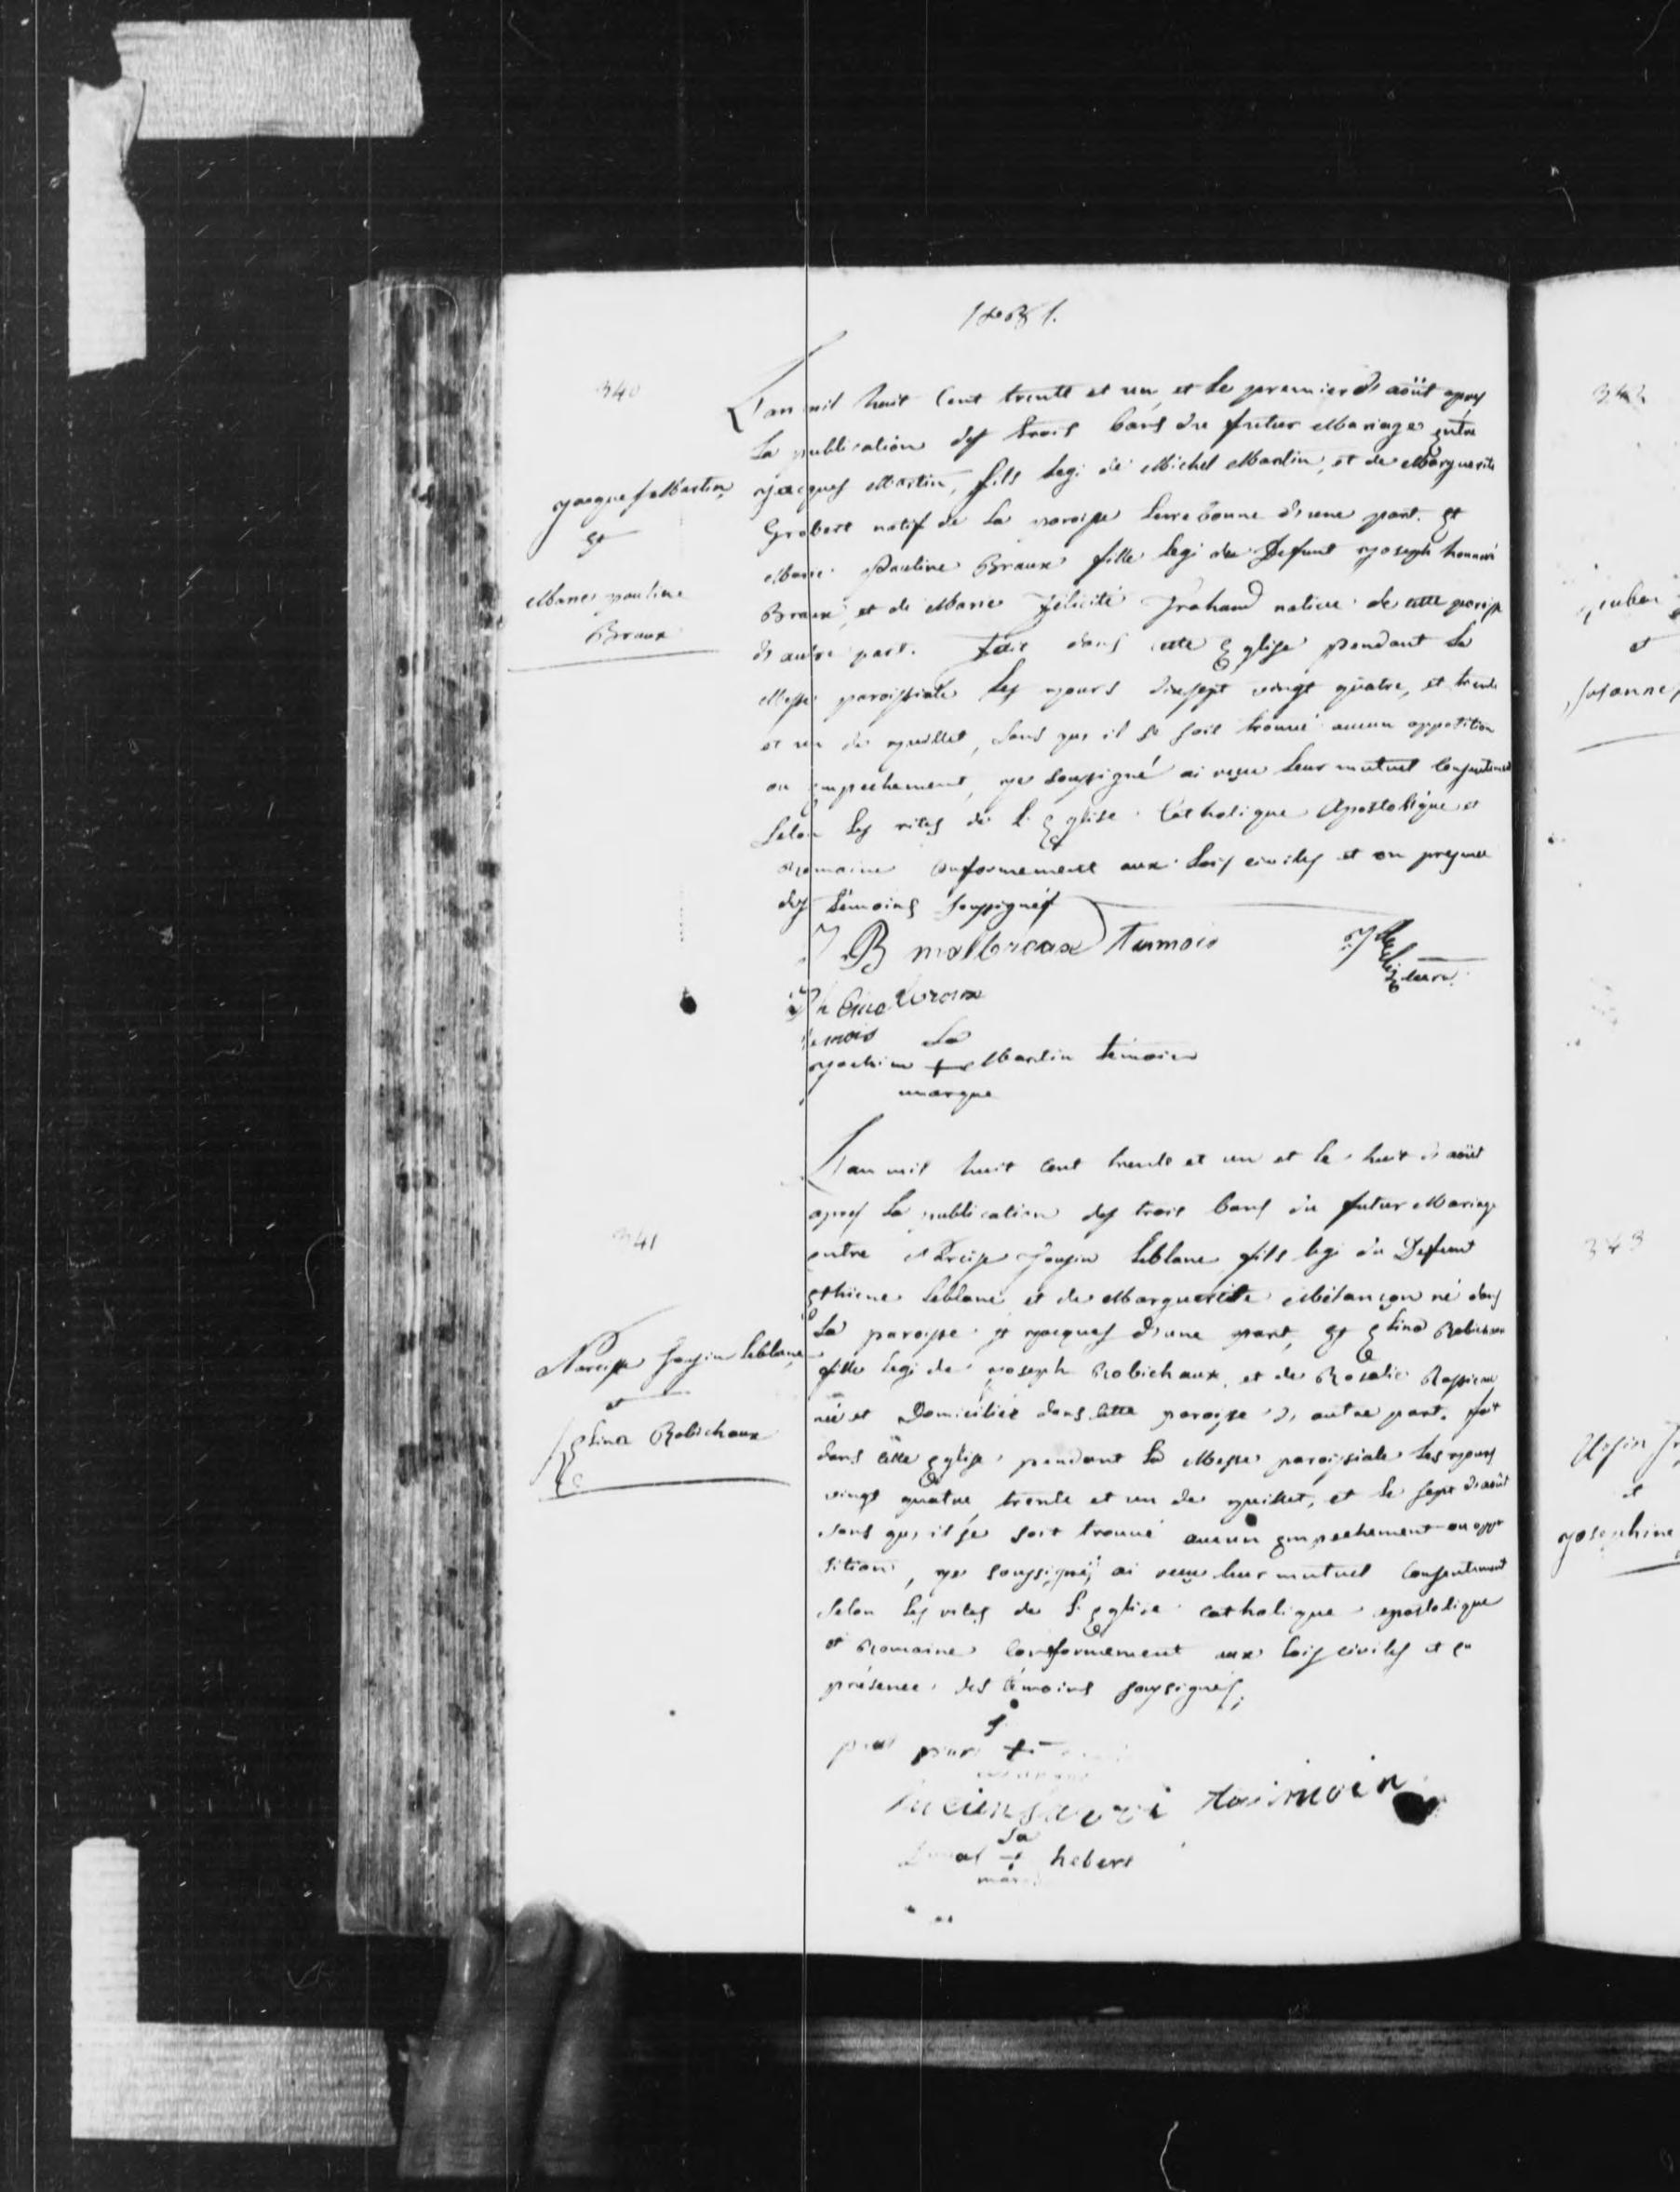 1831.
340
Jacques Martin
et
Marie pauline
Braux
L'an mil huit Cent trente et un, et le premier d'août apres
La publication des trois bans du futur Mariage entre
Jacques Martin, fils legi de Michel Martin, et de Marguerite
natif de La paroisse d'une part. Et
Marie Pauline Braux fille legi du Defunt Joseph honnoré
Braux, et de Marie Félicité Trahand native de cette paroisse
d'autre part. Fait dans cette Eglise pendant La
Messe paroissiale Les jours dixsept vingt quatre, et trente
et un de juillet, sans que il se soit trouvé aucun opposition
ou empechement, je soussigné ai reçu Leur mutuel Consentement
Selon Les rites de L'Eglise Catholique Apostolique et
Romaine Conformement aux Lois civiles et en presence
des témoins soussignés
J B malbroax temois
Curé
braux
temois Sa
Joachim + Martin témoin
marque
341
Narcisse Leblanc
et
Elina Robichaux
L'an mil huit cent trente et un et le huit d'août
apres La publication des trois bans du futur Mariage
entre Narcisse Leblanc fils legi du Defunt
Ethiene Leblanc et de Marguerite Melançon né dans
La paroisse St Jacques d'une part, Et Elina Robichaux
fille legi de Joseph Robichaux, et de Rosalie
née et Domiciliée dans cette paroisse d'autre part. fait
dans cette Eglise pendant La Messe paroissiale Les jours
vingt quatre, trente et un de juillet, et le sept d'août
sans que il se soit trouvé aucun empechement ou oppo
sition, je soussigné, ai reçu leur mutuel Consentement
Selon Les rites de L'Eglise catholique apostolique
et Romaine Conformement aux Lois civiles et en
présence des témoins soussignés.
+
Lucien taimoin
Sa
+ hebert
342
et
343
et
Josephine